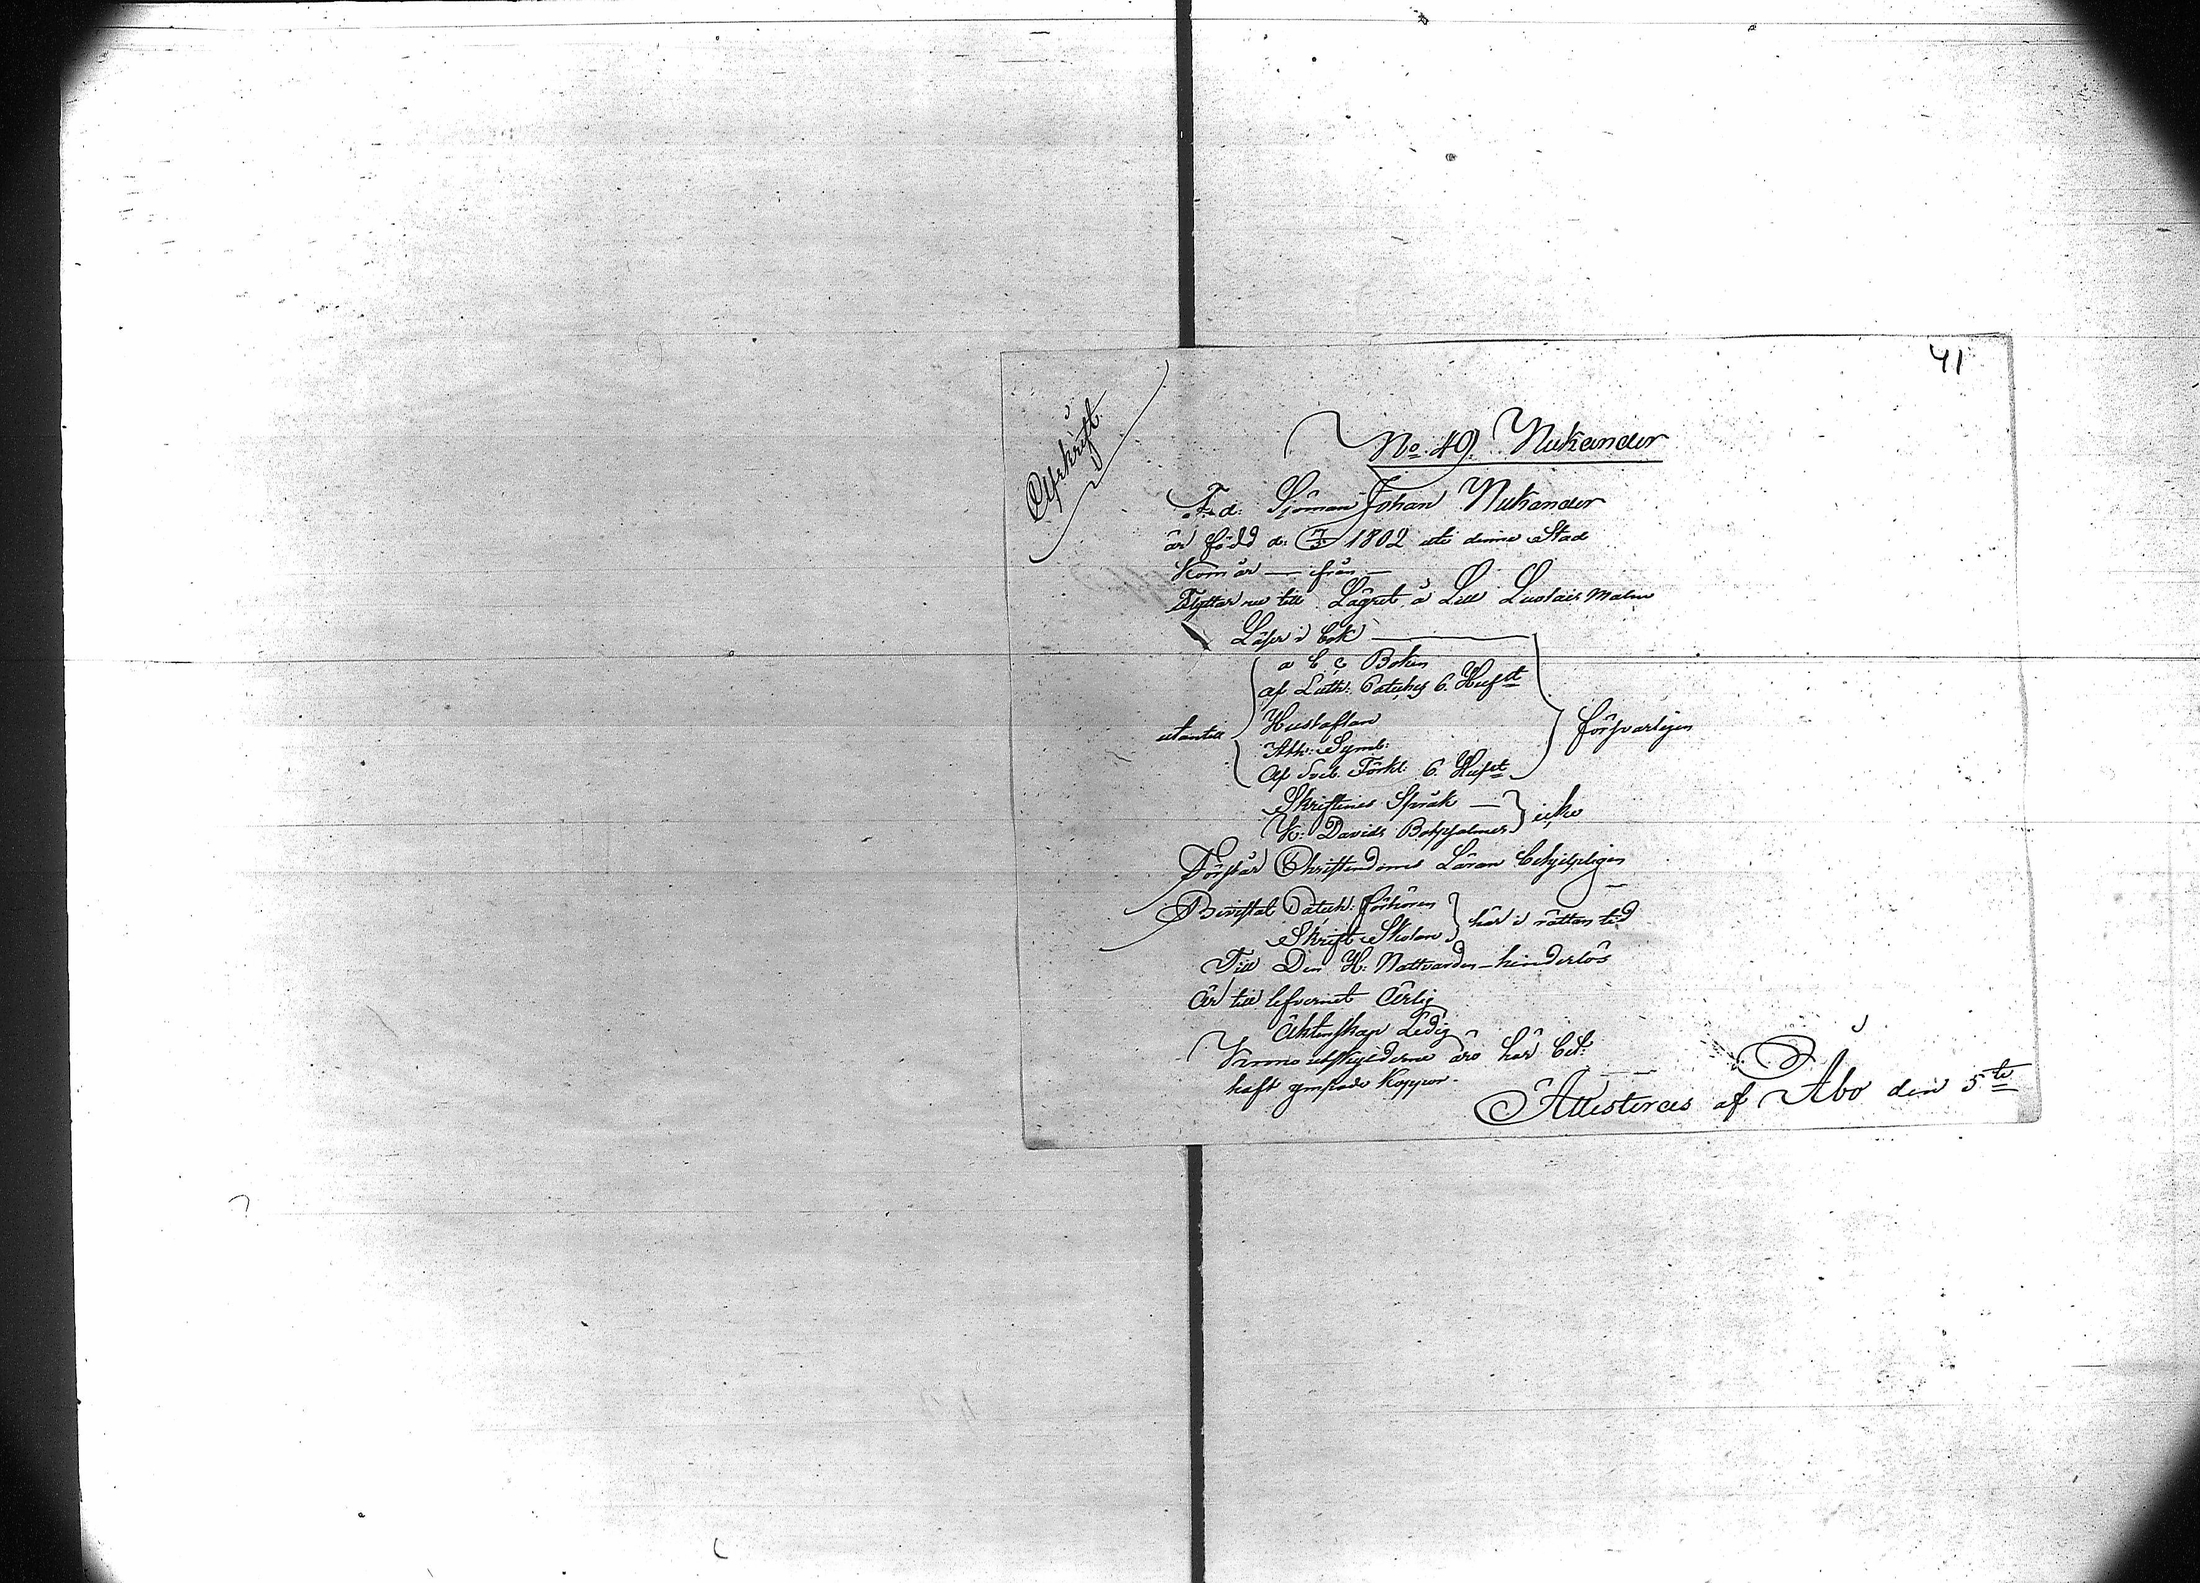 41
Afskrift
No. 49. Nukander
F. d. Sjöman Johan Nukander
är född d: 7/3 1802 uti denna Stad
Kom år — från —
Flyttar nu till Lägret å Lill Luolais Malm
Läser i bok
a b c Boken
af Luth: Cateches 6. Hufst
utantill Hustaflan försvarligen
Ath: Symb:
Af Förkl: 6. Hufst
Skriftenes Språk —
K: Davids Botpsalmer icke
Förstår Christendoms Läran behjelpligen
Bevistat Catech: förhören
Skrift Skolan här i rättan tid
Till Den H: Nattvarden — hinderlös
Är till lefvernet Ärlig
Äktenskap Ledig
utskylderne äro här bet:
haft ympade Koppor.
Attesteras af Åbo den 5te